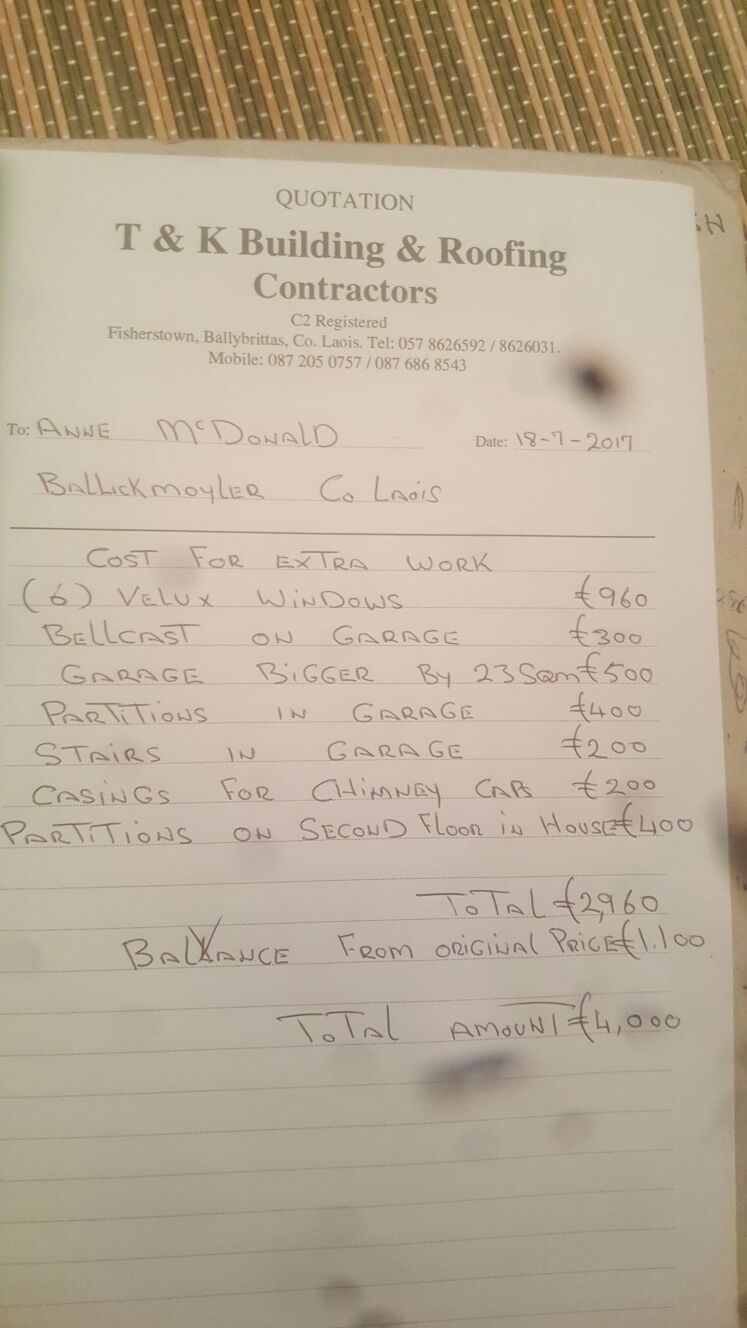 QUOTATION
T & K Building & Roofing
Contractors
C2 Registered
Fisherstown, Ballybrittas, Co. Laois. Tel: 057 8626592 / 8626031.
Mobile: 087 205 0757 / 087 686 8543
To: ANNE McDONALD Date: 18-7-2017
BALLICKMOYLER Co LAOIS
COST FOR EXTRA WORK
(6) VELUX WINDOWS €960
BELLCAST ON GARAGE €300
GARAGE BIGGER By 23 Sqm €500
PARTITIONS IN GARAGE €400
STAIRS IN GARAGE €200
CASINGS FOR CHIMNEY CAPS €200
PARTITIONS ON SECOND FLOOR in HOUSE €400
TOTAL €2,960
BALANCE FROM ORIGINAL PRICE €1.100
TOTAL AMOUNT €4,000